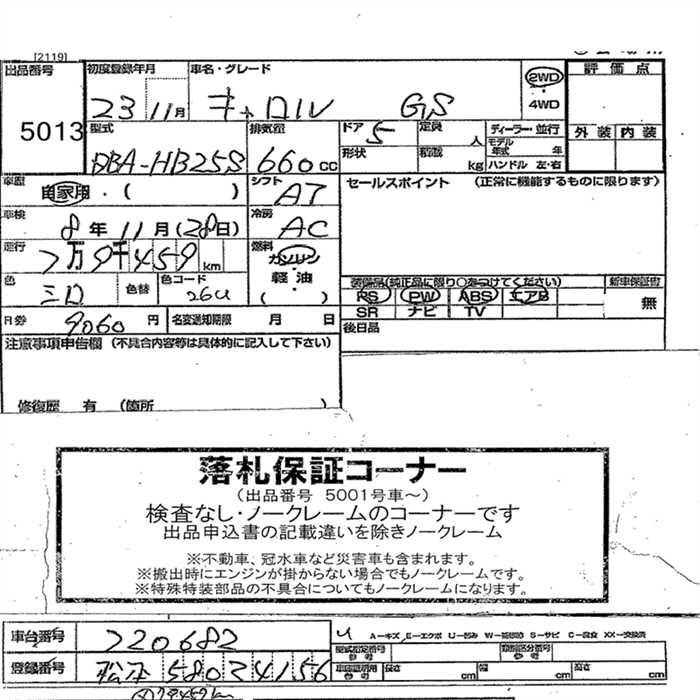 [2119]
出品番号
5013
初度登録年月
23 11月
車名・グレード
キャロル GS
2WD
・
4WD
評価点
外装 内装
型式
DBA-HB25S
排気量
660 cc
ドア 5
定員 人
ディーラー・並行
モデル年式 年
形状
積載 kg
ハンドル 左・右
車歴
自家用・( )
シフト
AT
セールスポイント (正常に機能するものに限ります)
車検
8年11月(28日)
冷房
AC
走行
7万9千459km
燃料
ガソリン
・
軽油
( )
色
色替
色コード
26U
装備品(純正品に限り○をつけてください)
新車保証書
PS PW ABS エアB
無
SR ナビ TV
後日品
月券
9060円
名変通知期限 月 日
注意事項申告欄 (不具合内容等は具体的に記入して下さい)
修復歴 有 (箇所 )
落札保証コーナー
(出品番号 5001号車～)
検査なし・ノークレームのコーナーです
出品申込書の記載違いを除きノークレーム
※不動車、冠水車など災害車も含まれます。
※搬出時にエンジンが掛からない場合でもノークレームです。
※特殊特装部品の不具合についてもノークレームになります。
車台番号
720682
A－キズ E－エクボ U－凹み S－サビ C－腐食 XX－交換済
登録番号
松本 580 2 4156
型式指定番号
参考
類別区分番号
参考
長さ cm
幅 cm
高さ cm